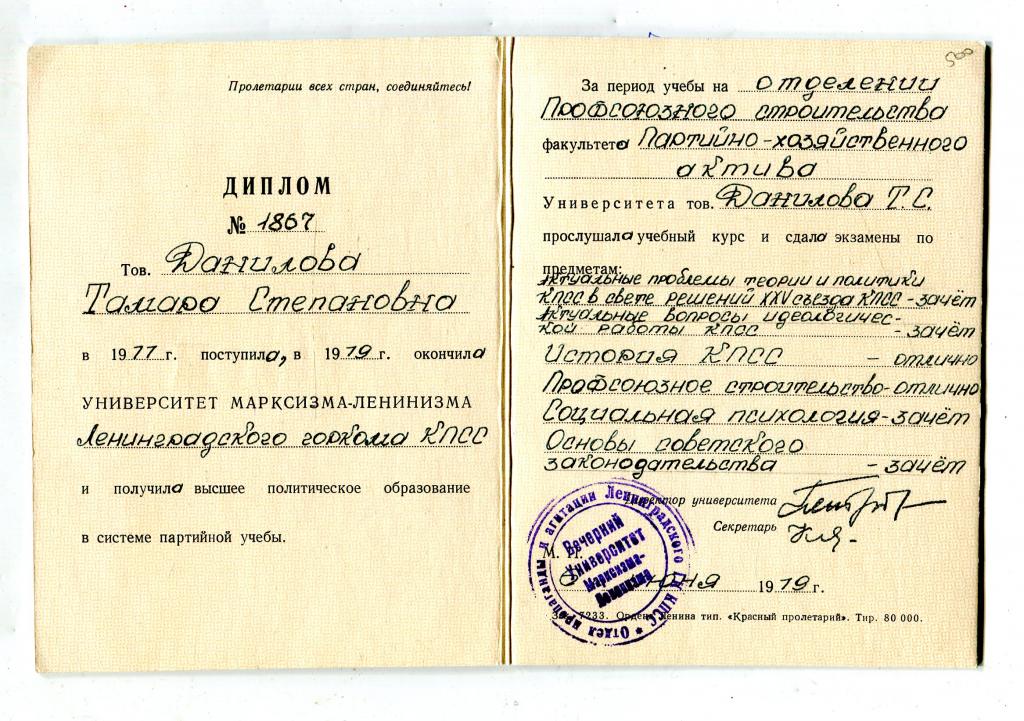 Пролетарии всех стран, соединяйтесь!
ДИПЛОМ
№ 1867
Тов. Данилова
Тамара Степановна
в 1977 г. поступила, в 1979 г. окончила
УНИВЕРСИТЕТ МАРКСИЗМА-ЛЕНИНИЗМА
Ленинградского горкома КПСС
и получила высшее политическое образование
в системе партийной учебы.
500
За период учебы на отделении
Профсоюзного строительства
факультета Партийно-хозяйственного
актива
Университета тов. Данилова Т.С.
прослушала учебный курс и сдала экзамены по
предметам:
Актуальные проблемы теории и политики
КПСС в свете решений XXV съезда КПСС - зачёт
Актуальные вопросы идеологичес-
кой работы КПСС - зачёт
История КПСС - отлично
Профсоюзное строительство - отлично
Социальная психология - зачёт
Основы советского
законодательства - зачёт
Директор университета
Секретарь
М. П.
июня 1979 г.
7233. Ордена Ленина тип. «Красный пролетарий». Тир. 80 000.
Отдел пропаганды и агитации Ленинградского ГК КПСС
Вечерний
Университет
Марксизма-
Ленинизма